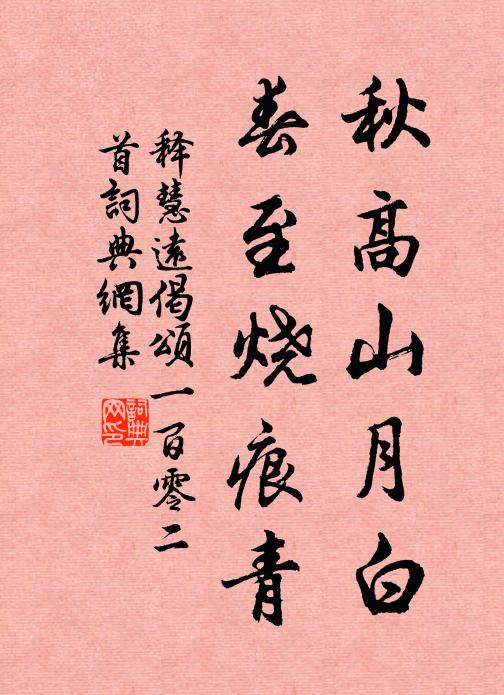 秋高山月白
春至烧痕青
释慧遠偈頌一百零二
首詞典網集
詞典
网印